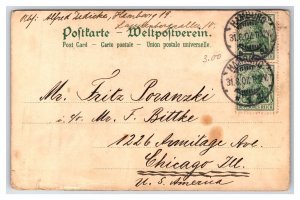 Abs: Alfred Zedicke, Hamburg 19.
Postkarte - Weltpostverein.
Post Card - Carte postale - Union postale universelle.
3.00
HAMBURG
31.8.02
Mr. Fritz Poranzki
Mr. F. Bittke
1226 Armitage Ave.
Chicago Ill.
U. S. America